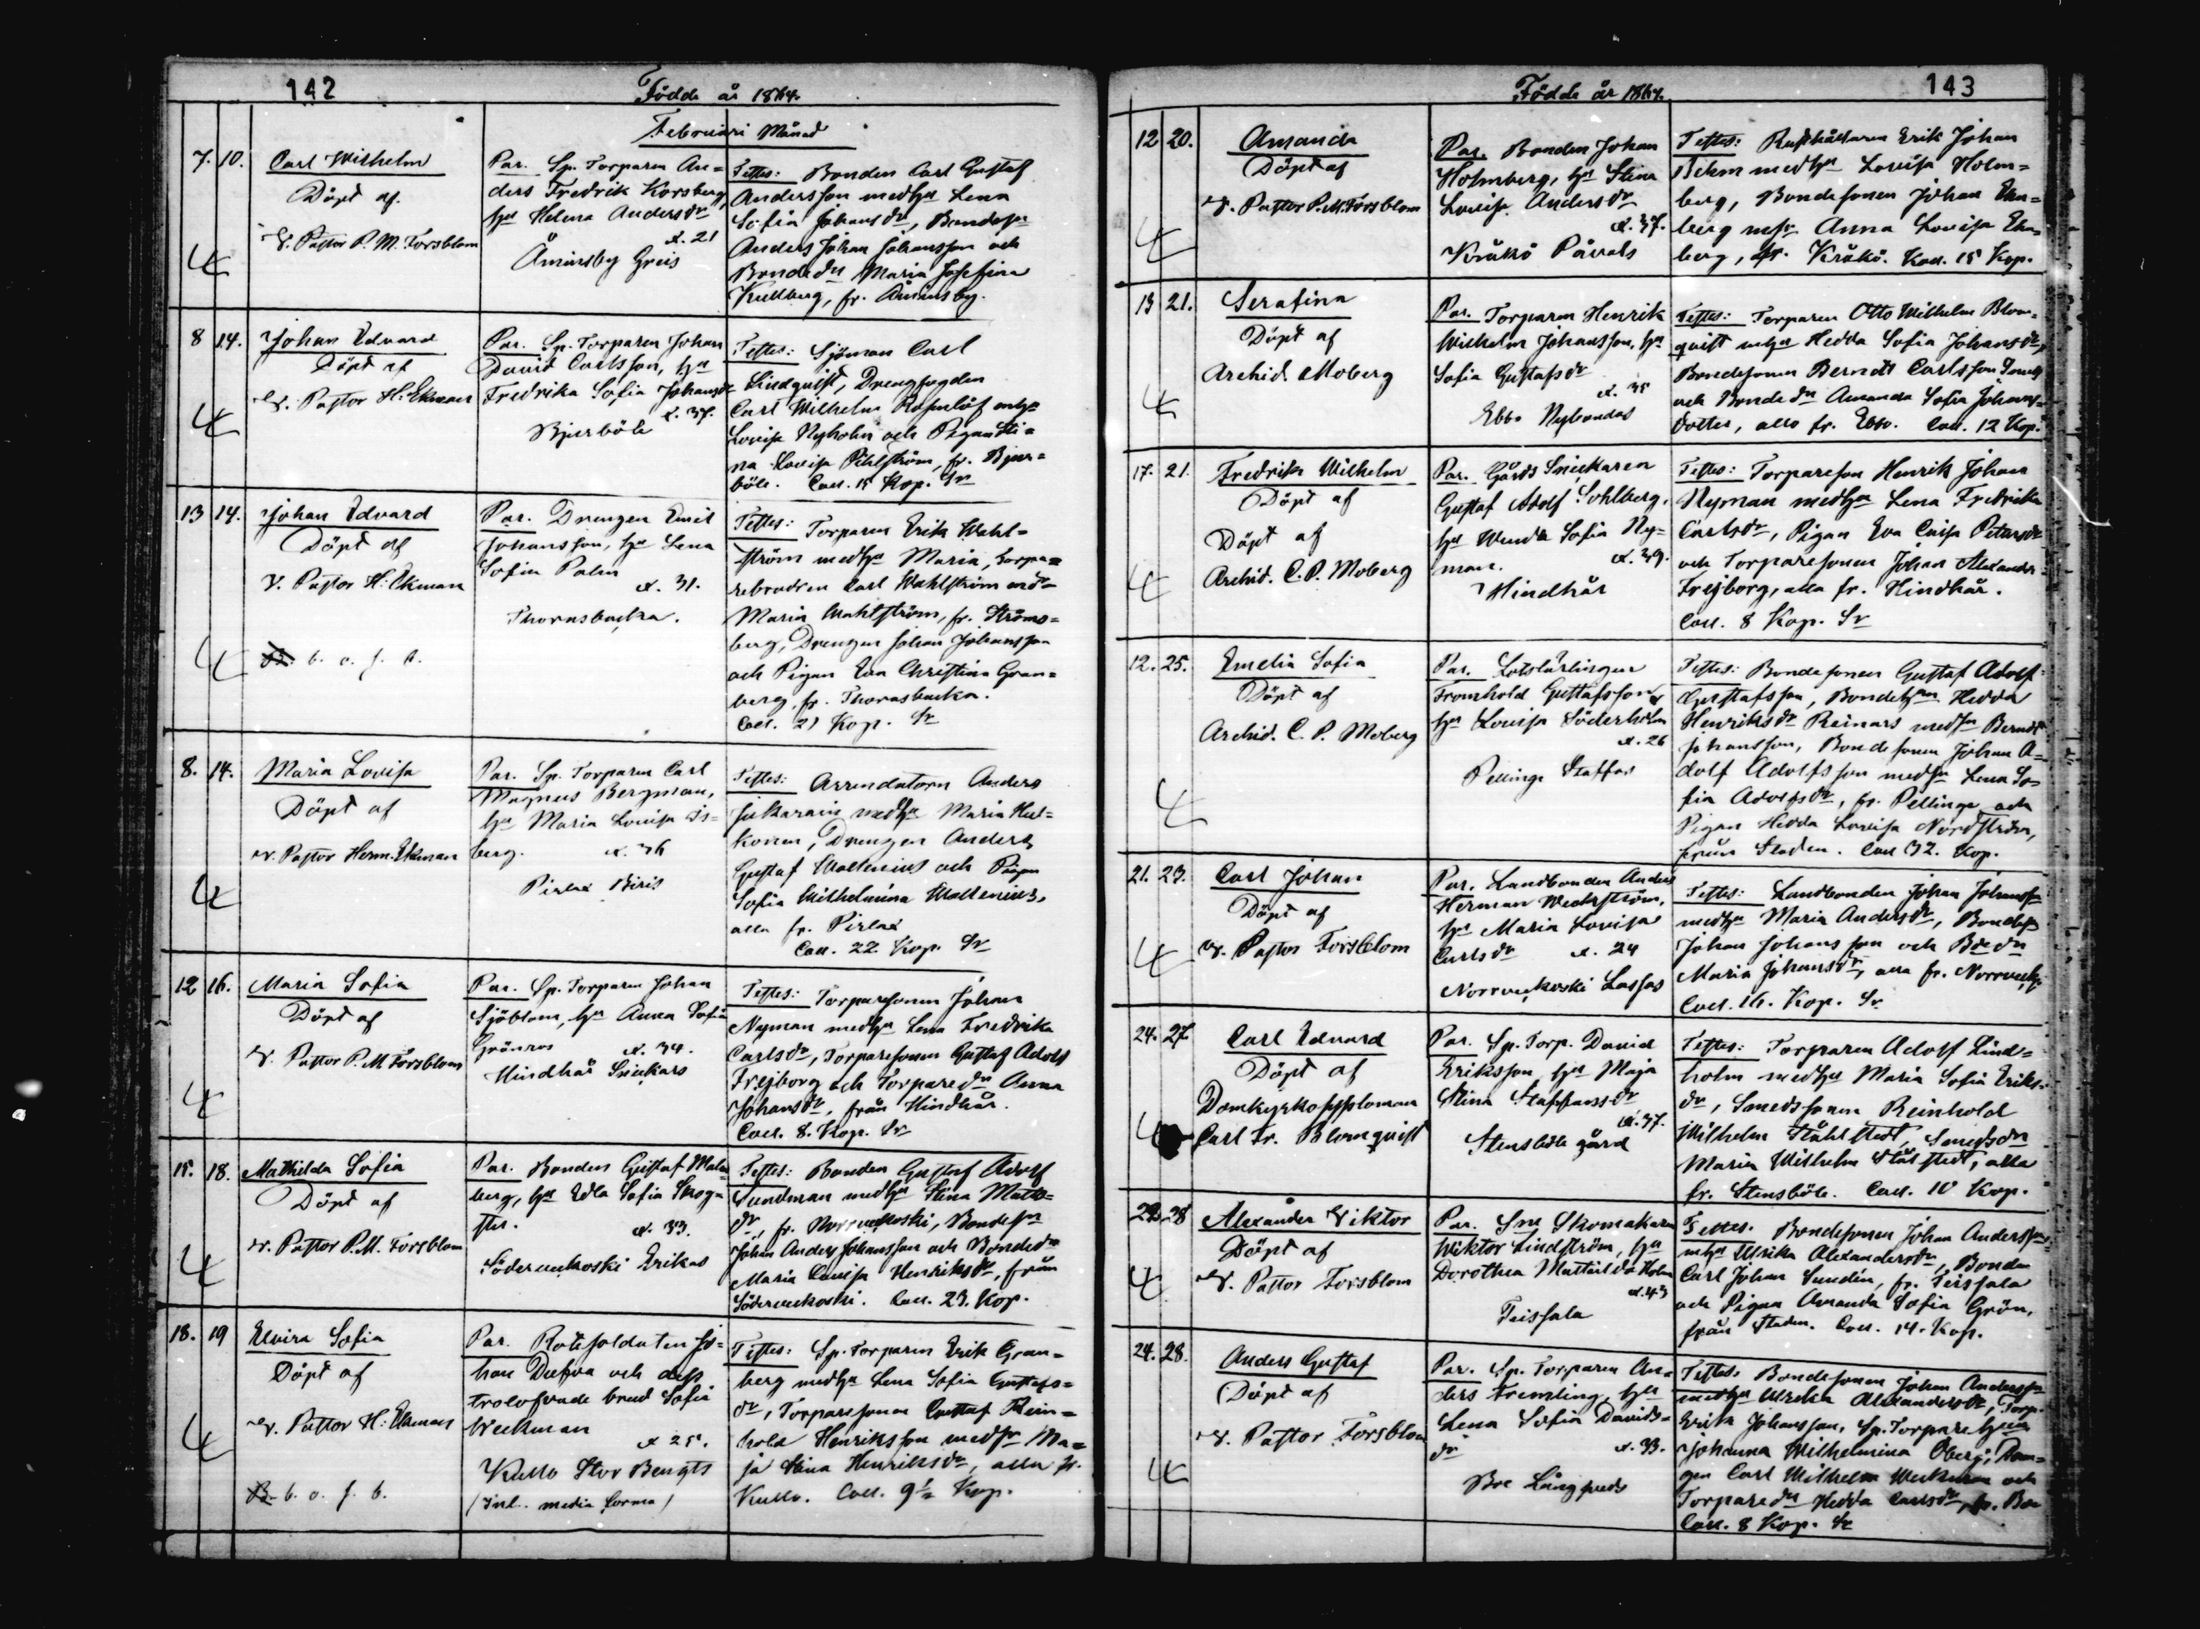 142
Födde år 1864.
Februari Månad
7. 10.
Carl Wilhelm
Döpt af
V. Pastor P. M. Forsblom
Par. Sp. Torparen An=
ders Fredrik Korsberg,
hu Helena Andersdr
æ. 21
Åminsby Greis
Testes: Bonden Carl Gustaf
Andersson med hu Lena
Sofia Johansdr, Bondes.
Anders Johan Johansson och
Bonde dr Maria Josefina
Kullberg, fr. Åminsby.
8 14.
Johan Edvard
Döpt af
V. Pastor H. Ekman
Par. Sp. Torparen Johan
David Carlsson, hu
Fredrika Sofia Johansdr
æ. 37.
Bjurböle
Testes: Sjöman Carl
Lindquist, Drengfogden
Carl Wilhelm m hu
Lovisa Nyholm och Pigan Sti=
na Lovisa Pihlström, fr. Bjur=
böle. Coll. 15 Kop. Sr
13 14.
Johan Edvard
Döpt af
V. Pastor H. Ekman
b. o. f. A.
Par. Drengen Emil
Johansson, hu Lena
Sofia Palm
æ. 31.
Thorasbacka.
Testes: Torparen Erik Wahl=
ström med hu Maria, Torpa=
rebrodren Carl Wahlström och
Maria Wahlström, fr. Ströms=
berg, Drengen Johan Johansson
och Pigan Eva Christina Gran=
berg, fr. Thorasbacka.
Coll. 21 Kop. Sr
8. 14.
Maria Lovisa
Döpt af
v. Pastor Herm. Ekman
Par. Sp. Torparen Carl
Magnus Bergman,
hu Maria Lovisa Is=
berg. æ. 36
Pirlax Biris
Testes: Arrendatorn Anders
med hu Maria
konen, Drengen Anders
Gustaf Waltenius och Pigan
Sofia Wilhelmina Waltenius,
alla fr. Pirlax
Coll. 22 Kop. Sr
12 16.
Maria Sofia
Döpt af
V. Pastor P. M. Forsblom
Par. Sp. Torparen Johan
Sjöblom, hu Anna Sofia
Grönros æ. 34.
Hindhår Snickars
Testes: Torparesonen Johan
Nyman med hu Lena Fredrika
Carlsdr, Torparesonen Gustaf Adolf
Frejborg och Torpare dr Anna
Johansdr, från Hindhår.
Coll. 8. Kop. Sr
15. 18.
Mathilda Sofia
Döpt af
v. Pastor P. M. Forsblom
Par. Bonden Gustaf Malm=
berg, hu Edla Sofia Skog=
ster. æ. 33.
Söderveckoski Erikas
Testes: Bonden Gustaf Adolf
Sundman med hu Stina Matts=
dr, fr. Norrveckoski, Bondes.
Johan Anders Johansson och Bondedr
Maria Lovisa Henriksdr, från
Söderveckoski. Coll. 23. Kop.
18. 19
Elvira Sofia
Döpt af
V. Pastor H. Ekman
b. o. f. b.
Par. Rotesoldaten Jo=
han Dufva och dess
trolofvade brud Sofia
Weckman
æ 25.
Kullo Stor Bengts
(Int. media forma)
Testes: Sp. Torparen Erik Gran=
berg med hu Lena Sofia Gustafs=
dr, Torparesonen Gustaf Rein=
hold Henriksson med Ma=
ja Stina Henriksdr, alla fr.
Kullo. Coll. 9½ Kop.
Födde år 1864.
143
12 20.
Amanda
Döpt af
V. Pastor P. M. Forsblom
Par. Bonden Johan
Holmberg, hu Stina
Lovisa Andersdr
æ. 37.
Kråkö Påvals
Testes: Rusthållaren Erik Johan
med hu Lovisa Holm=
berg, Bondesonen Johan Eke=
berg Anna Lovisa Eke=
berg, fr. Kråkö. Coll. 15 Kop.
13 21.
Serafina
Döpt af
Archid. Moberg
Par. Torparen Henrik
Wilhelm Johansson, hu
Sofia Gustafsdr
æ. 35
Ebbo Nybondas
Testes: Torparen Otto Wilhelm Blom=
quist m hu Hedda Sofia Johansdr,
Bondesonen Berndt Carlsson
och Bonde dr Amanda Sofia Johans=
dotter, alla fr. Ebbo. Coll. 12 Kop.
17. 21.
Fredrik Wilhelm
Döpt af
Döpt af
Archid. C. P. Moberg
Par. Gårds Snickaren
Gustaf Adolf Sohlberg,
hu Wenda Sofia Ny=
man. æ. 39.
Hindhår
Testes: Torpareson Henrik Johan
Nyman med hu Lena Fredrika
Carlsdr, Pigan Eva Caisa Petersdr
och Torparesonen Johan Alexander
Frejborg, alla fr. Hindhår.
Coll. 8 Kop. Sr
12. 25.
Emelia Sofia
Döpt af
Archid. C. P. Moberg
Par. Lotslärlingen
Fromhold Gustafsson &
hu Lovisa Söderholm
æ. 26
Pellinge Staffas
Testes: Bondesonen Gustaf Adolf
Gustafsson, Bondehun Hedda
Henriksdr Reinars med Berndt
Johansson, Bondesonen Johan A=
dolf Adolfsson med Lena So=
fia Adolfsdr, fr. Pellinge och
Pigan Hedda Lovisa Nordström,
från Staden. Coll 32. Kop.
21. 23.
Carl Johan
Döpt af
v. Pastor Forsblom
Par. Landbonden Anders
Herman Weckström,
hu Maria Lovisa
Carlsdr æ. 24
Norrveckoski Lassas
Testes: Landbonden Johan Johansson
med hu Maria Andersdr, Bondes.
Johan Johansson och Bdedr
Maria Johansdr, alla fr. Norrvecki.
Coll. 16. Kop. Sr
24. 27
Carl Edvard
Döpt af
Domkyrkosyssloman
Carl Fr. Blomquist
Par. Sp. Torp. David
Eriksson, hu Maja
Stina Staffansdr
æ. 37.
Stensböle gård
Testes: Torparen Adolf Lind=
holm med hu Maria Sofia Eriks=
dr, Smedssonen Reinhold
Wilhelm Stålstedt, Smedsdr
Maria Wilhelm Stålstedt, alla
fr. Stensböle. Coll. 10 Kop.
28
Alexander Viktor
Döpt af
V. Pastor Forsblom
Par. Skomakaren
Wiktor Lindström, hu
Dorothea Mathilda Holm
æ. 43
Teissala
Testes. Bondesonen Johan Andersson
m hu Ulrika Alexandersdr, Bonden
Carl Johan Sundin, fr. Teissala
och Pigan Amanda Sofia Grön,
från Staden. Coll. 14. Kop.
24. 28.
Anders Gustaf
Döpt af
V. Pastor Forsblom
Par. Sp. Torparen An=
ders Fremling, hu
Lena Sofia Davids=
dr æ. 33.
Boe Långpeds
Testes. Bondesonen Johan Andersson
med hu Ulrika Alexandersdr, Torp.
Erik Johansson, Sp. Torpare hun
Johanna Wilhelmina Öberg, Dren=
gen Carl Wilhelm Weckman och
Torpare dr Hedda Carlsdr, fr. Boe
Coll. 8 Kop. Sr